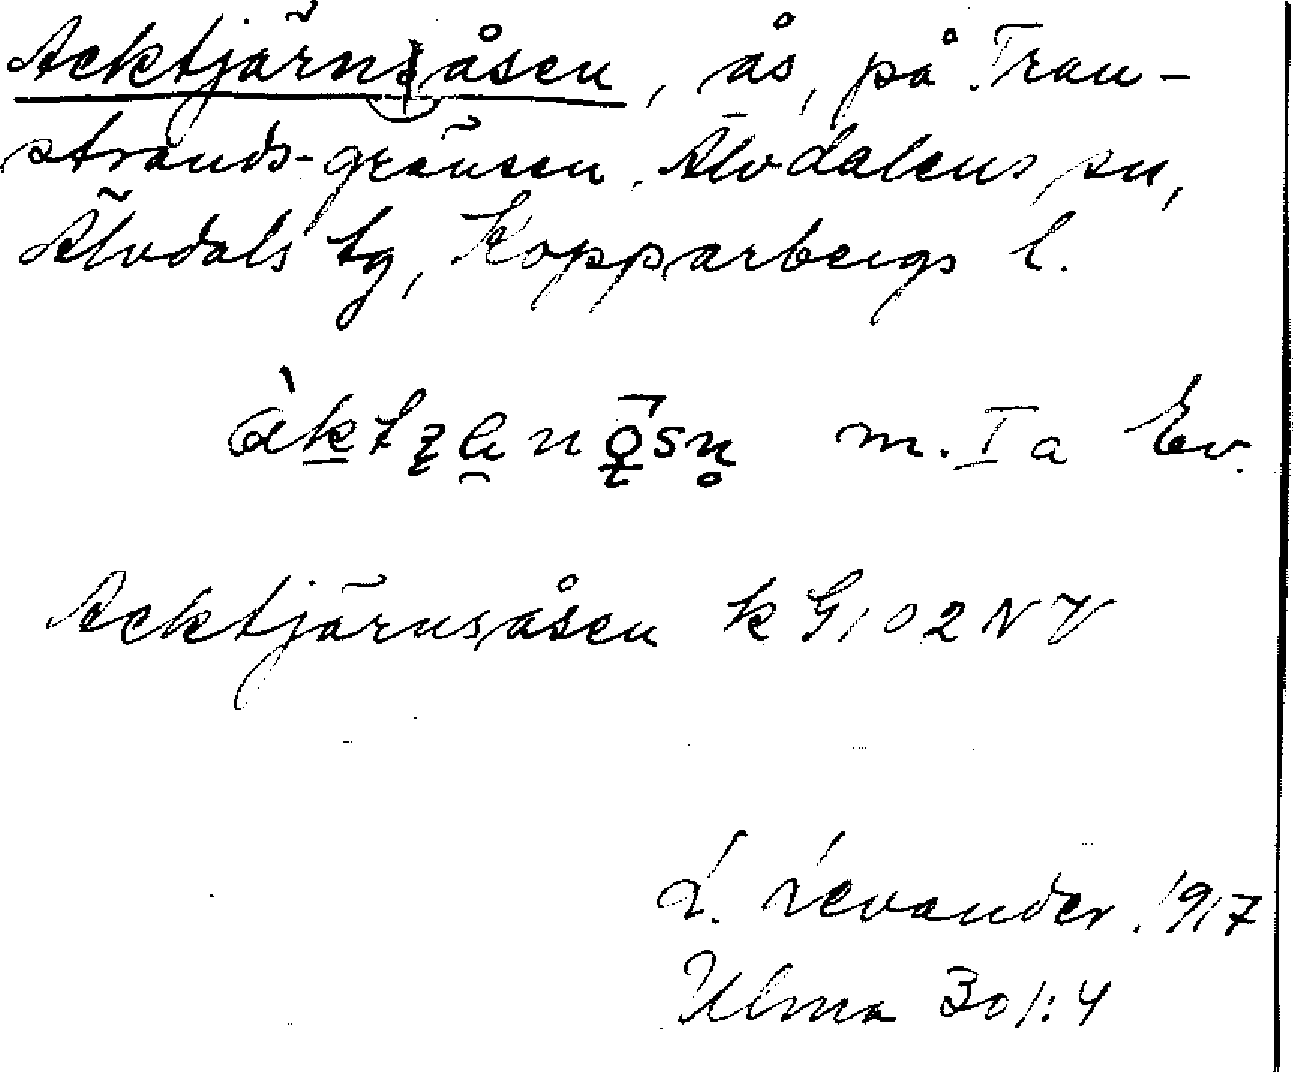 Acktjärnsåsen, ås, på Tran-
strands-gränsen, Älvdalens sn,
Älvdals tg, Kopparbergs l.
m. I a Ev.
Acktjärnsåsen k G102NV
L. Levander 1917
Ulma 301:4